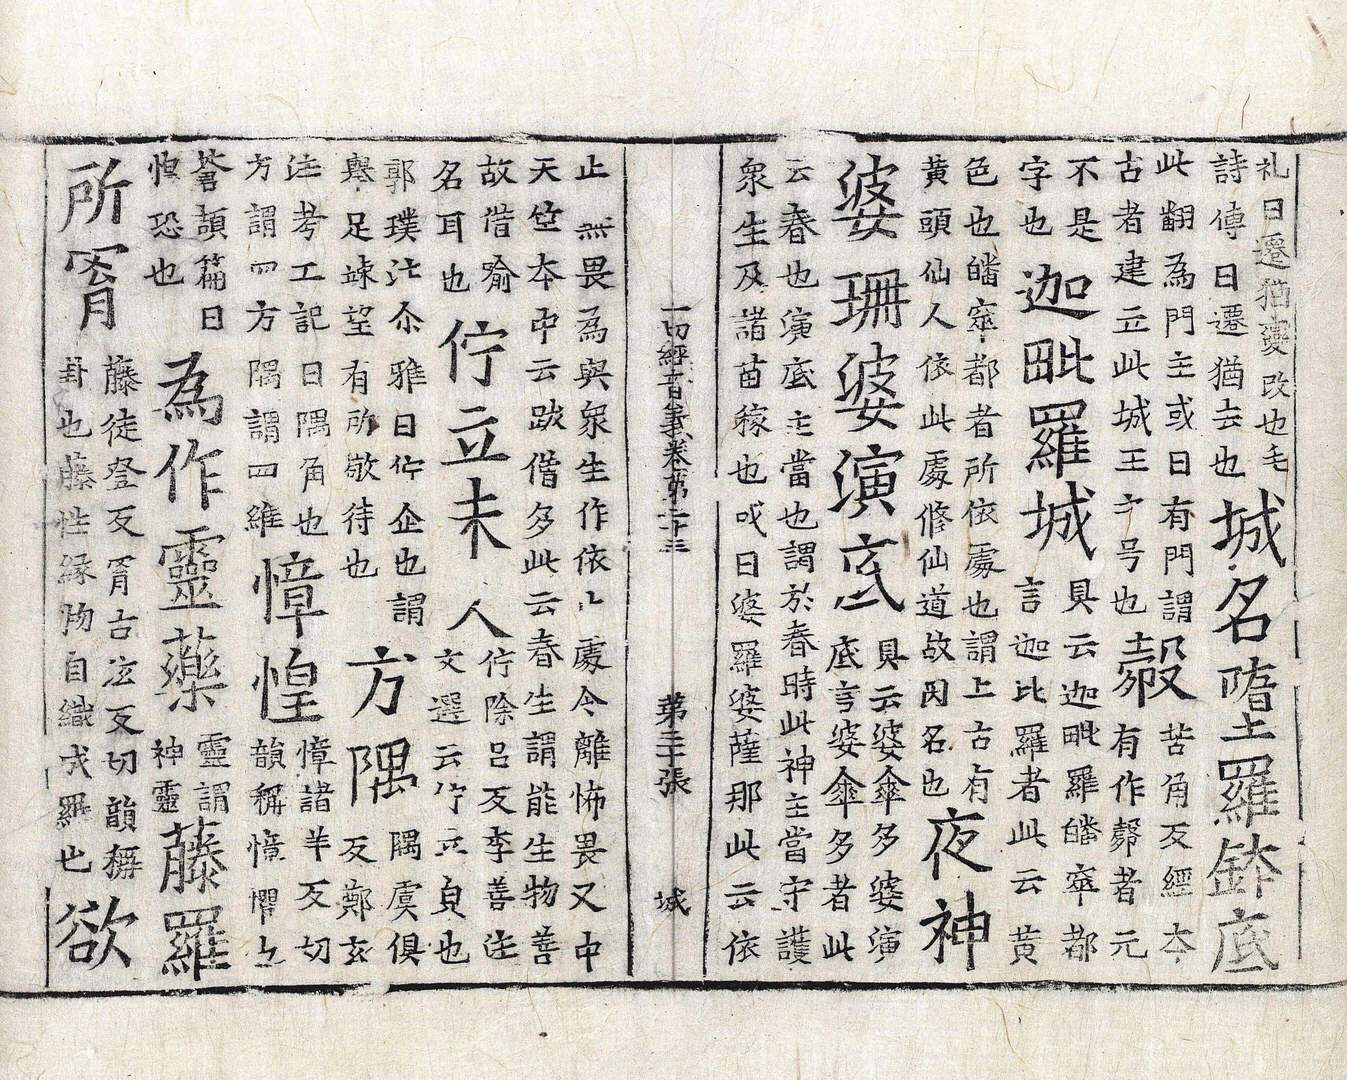 礼曰遷猶變改也毛
詩傳曰遷猶去也
城名墮羅鉢底
此翻為門主或曰有門謂
古者建立此城王之号也
㲉
苦角反經本
有作㝅者元
不是
字也
迦毗羅城
具云迦毗羅皤窣都
言迦比羅者此云黄
色也皤窣都者所依處也謂上古有
黄頭仙人依此處修仙道故因名也
夜神
婆珊婆演底
具云婆傘多婆演
底言婆傘多者此
云春也演底主當也謂於春時此神主當守護
衆生及諸苗稼也或曰婆羅婆薩那此云依
一切經音義卷第二十三 第二十張 城
止無畏為與衆生作依止處令離怖畏又中
天竺本中云跋僧多此云春生謂能生物善
故借喻
名耳也
佇立未人
佇除呂反李善注
文選云佇立皃也
郭璞注尒雅曰佇企也謂
舉足竦望有所敬待也
方隅
隅虞俱
反鄭玄
注考工記曰隅角也
方謂四方隅謂四維
慞惶
慞諸羊反切
韻稱慞懼也
蒼頡篇曰
惶恐也
為作靈藥
靈謂
神靈
藤羅
所罥
藤徒登反罥古泫反切韻稱
卦也藤性縁物自織成羅也
欲